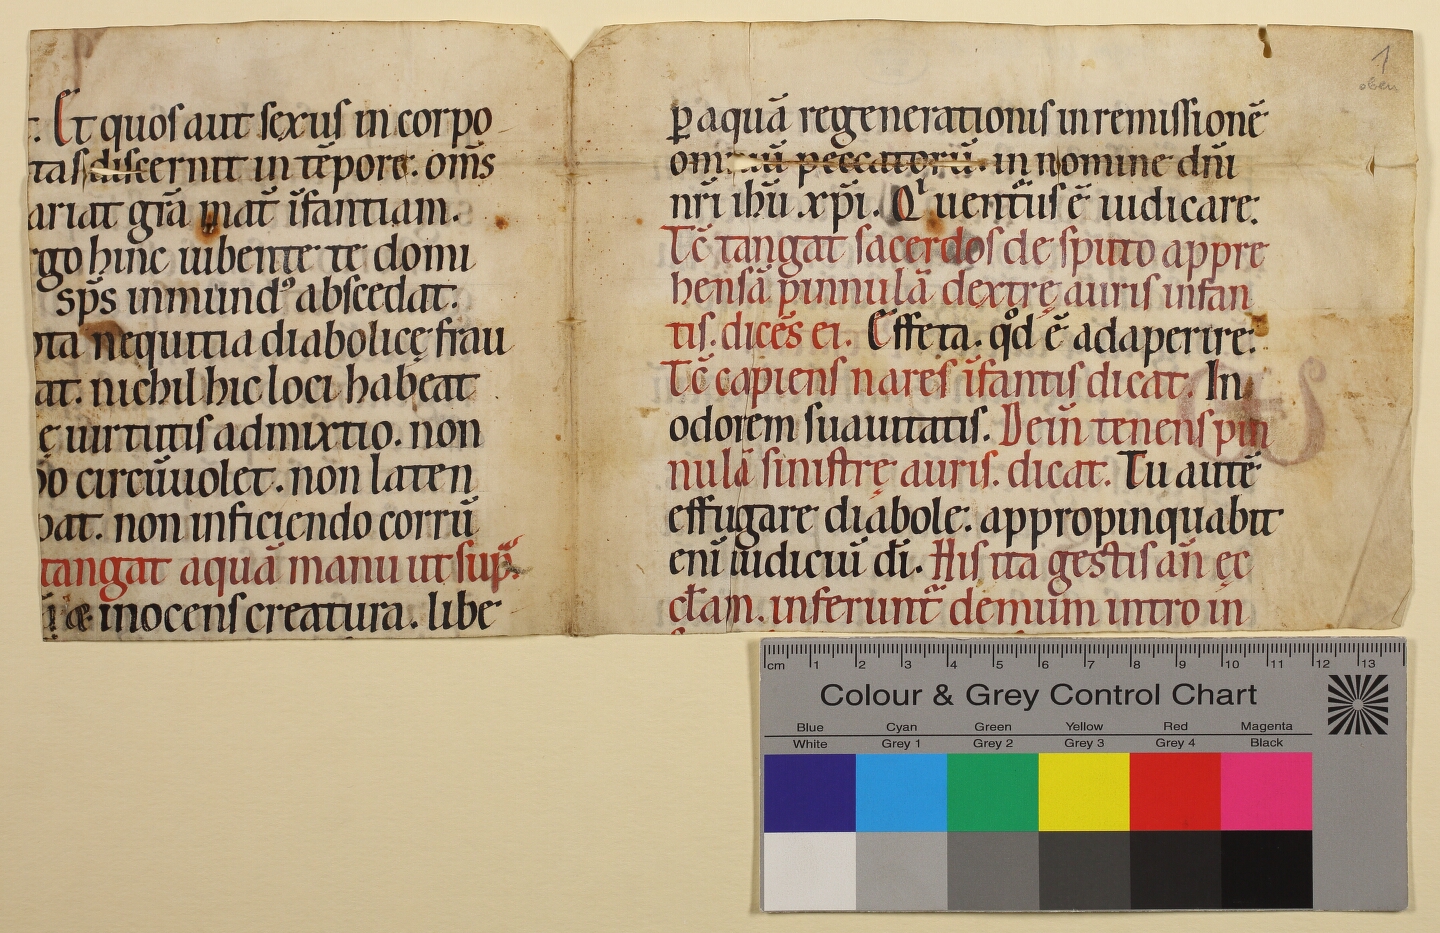 Et quos aut sexus in corpo
tas discernit in tēpore. om̄s
ariat gr̄a mat̄ īfantiam.
go hinc iubente te domi
sp̄s inmundꝰ abscedat.
ta nequitia diabolicę frau
at. nichil hic loci habeat
ę uirtutis admixtio. non
o circūuolet. non laten
pat. non inficiendo corrū
tangat aquā manu ut sup̄.
inocens creatura. libe
ꝑ aquā regenerationis in remissionē
peccatorū. in nomine dn̄i
nr̄i ih̄u xp̄i. Qͥ uent̄us ē iudicare.
Tc̄ tangat sacerdos de sputo appre
hensā pinnulā dextrę auris infan
tis. dicēs ei. Effeta. qͦd ē adaperire.
Tc̄ capiens nares īfantis dicat. In
odorem suauitatis. Dein̄ tenens pin
nulā sinistrę auris. dicat. Tu autē
effugare diabole. appropinquabit
eni̅ iudiciū dī. His ita gestis an̄ ęc
cl̄am. inferunt̄ demum intro in
1
oben
cm 1 2 3 4 5 6 7 8 9 10 11 12 13
Colour & Grey Control Chart
Blue Cyan Green Yellow Red Magenta
White Grey 1 Grey 2 Grey 3 Grey 4 Black